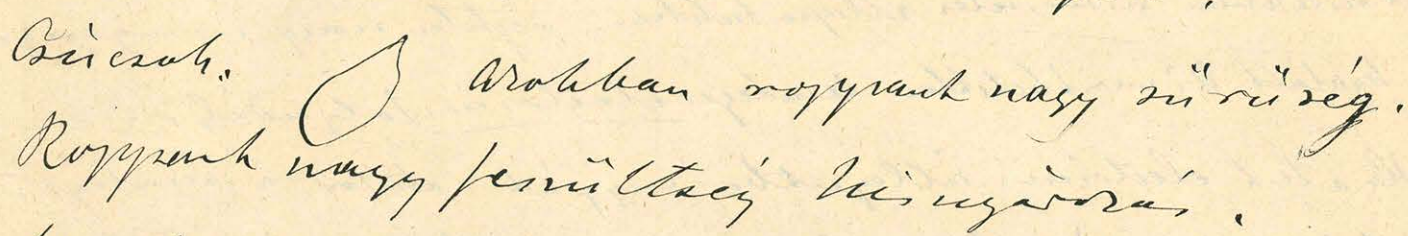 Csúcsok. Azokban roppant nagy sűrűség.
Roppant nagy feszültség kisugárzás.